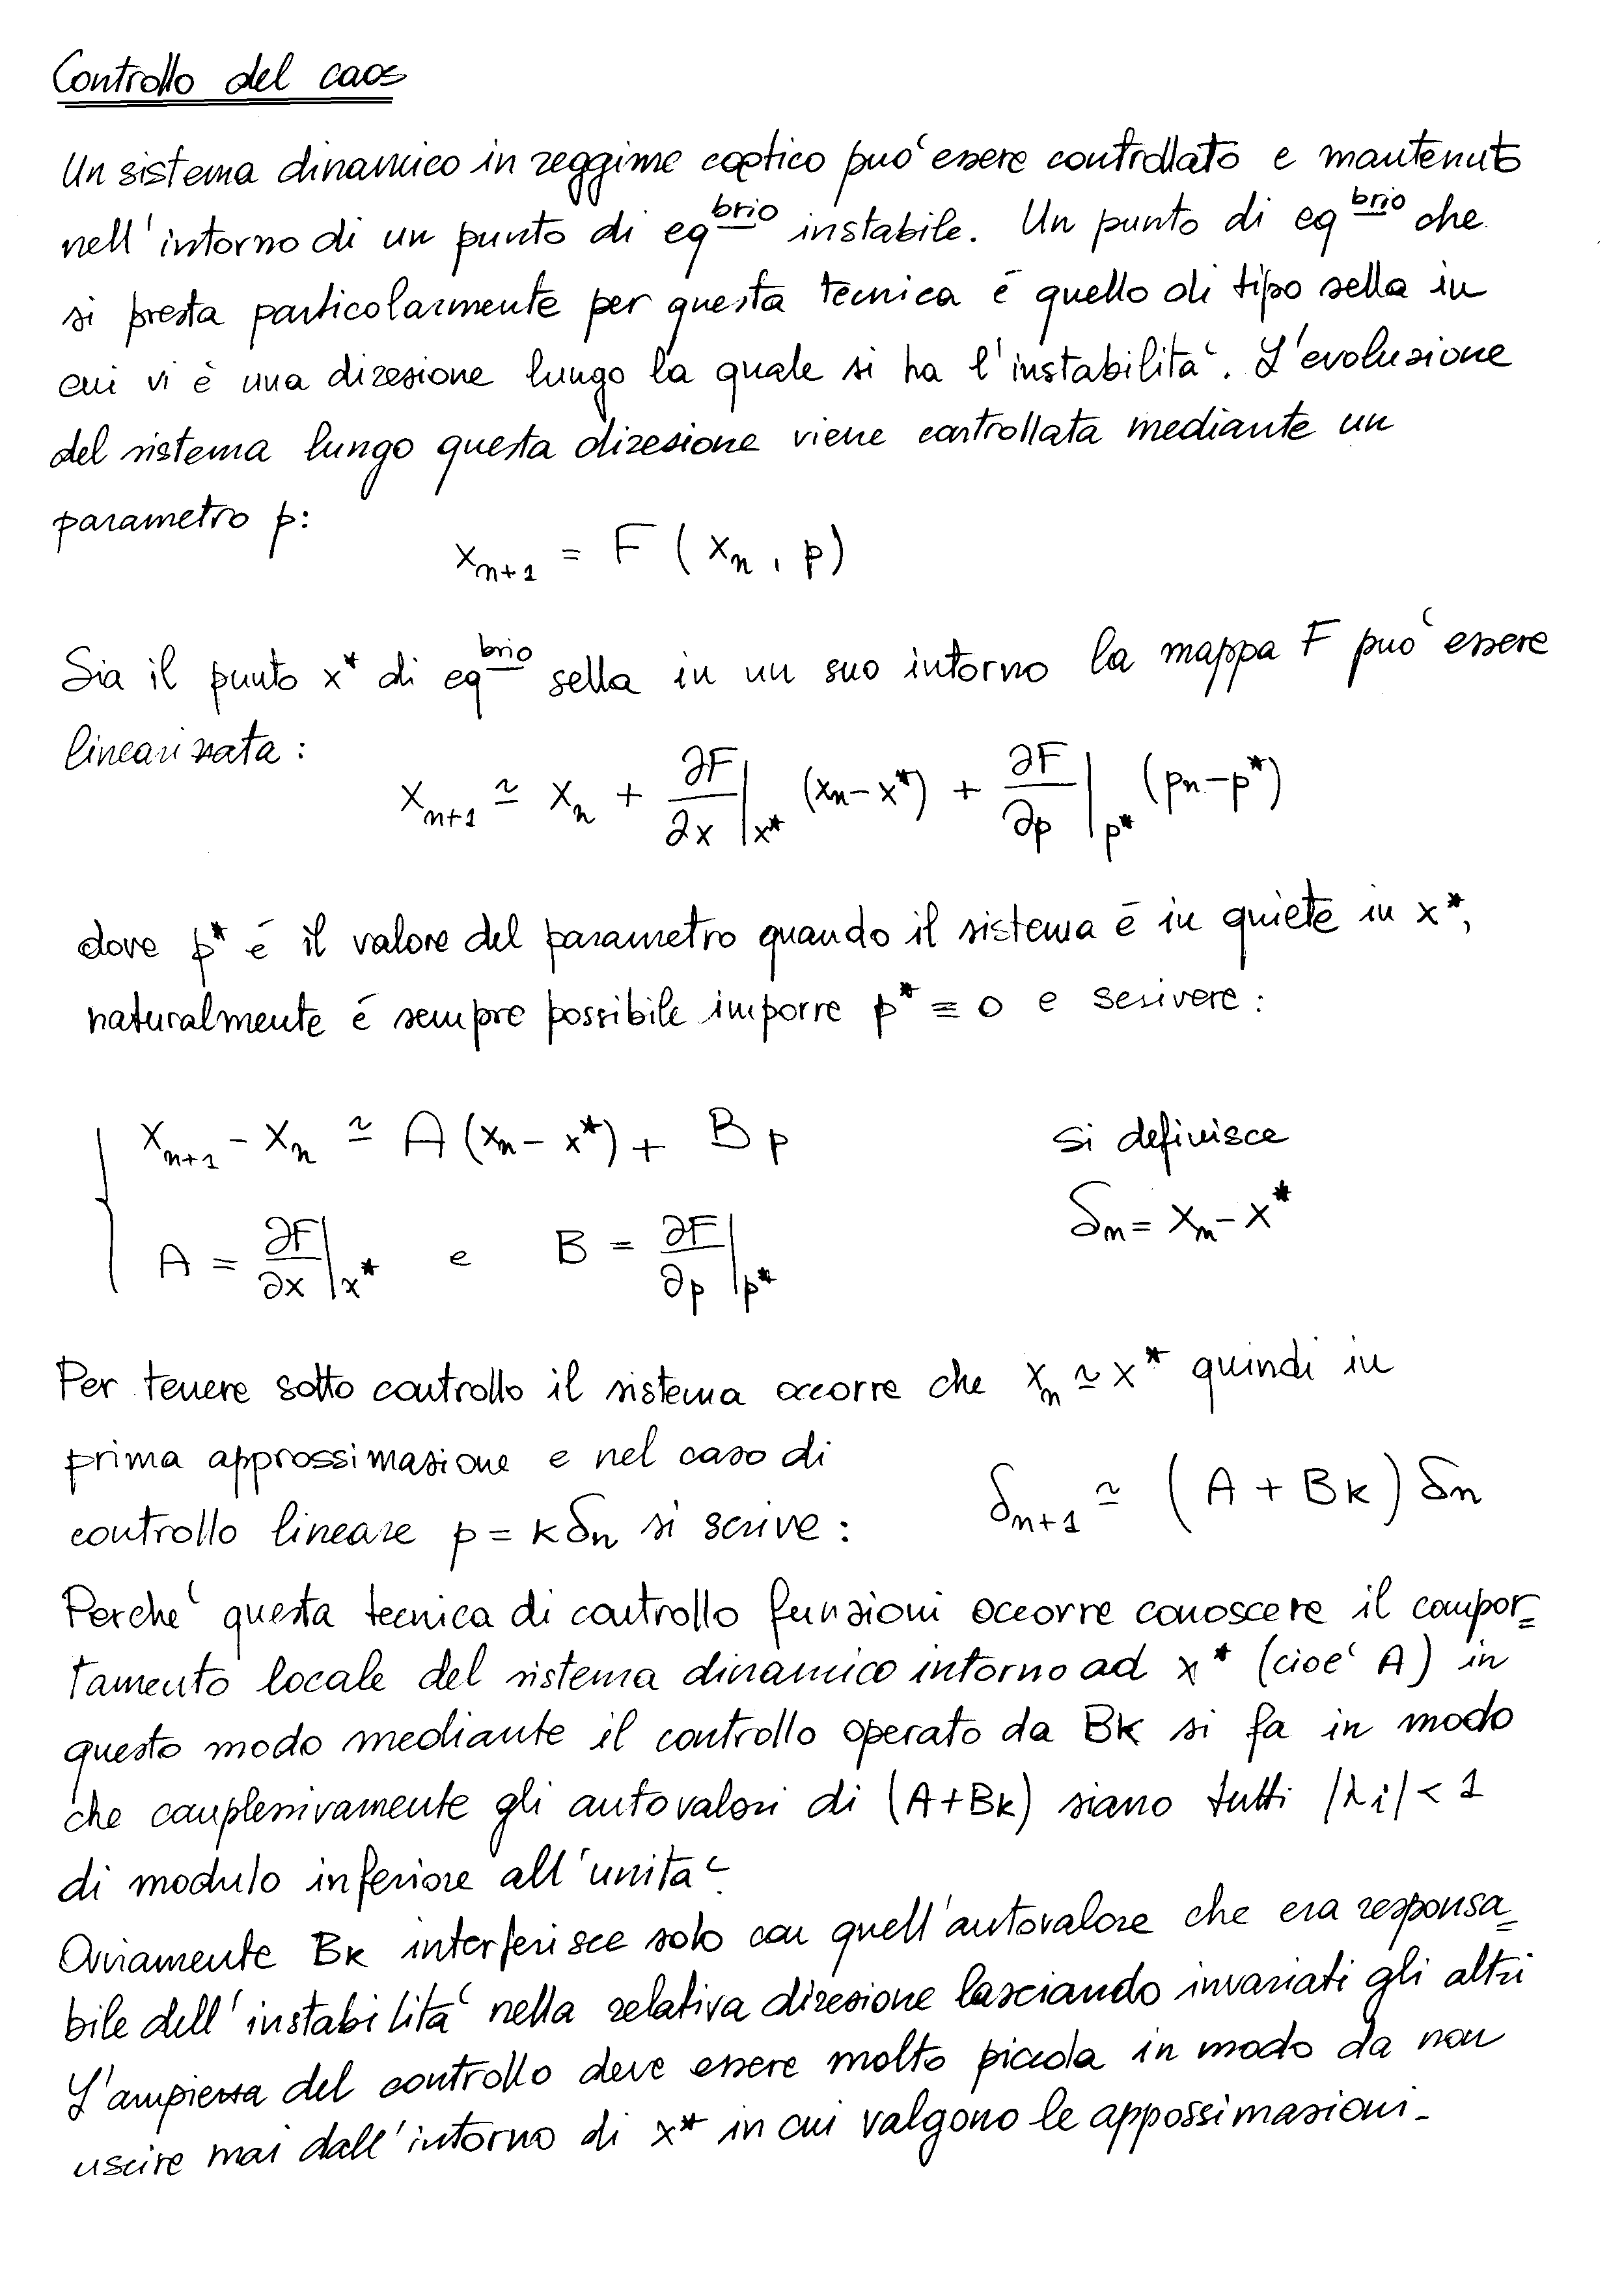 Controllo del caos
Un sistema dinamico in reggime caotico può essere controllato e mantenuto
nell'intorno di un punto di eq^brio instabile. Un punto di eq^brio che
si presta particolarmente per questa tecnica è quello di tipo sella in
cui vi è una direzione lungo la quale si ha l'instabilità. L'evoluzione
del sistema lungo questa direzione viene controllata mediante un
parametro p:
x_{n+1} = F(x_n, p)
Sia il punto x* di eq^brio sella in un suo intorno la mappa F può essere
linearizzata:
x_{n+1} ≃ x_n + ∂F/∂x|_{x*} (x_n - x*) + ∂F/∂p|_{p*} (p_n - p*)
dove p* è il valore del parametro quando il sistema è in quiete in x*,
naturalmente è sempre possibile imporre p* = 0 e scrivere:
x_{n+1} - x_n ≃ A(x_n - x*) + Bp si definisce
A = ∂F/∂x|_{x*} e B = ∂F/∂p|_{p*} δ_n = x_n - x*
Per tenere sotto controllo il sistema occorre che x_n ≃ x* quindi in
prima approssimazione e nel caso di
controllo lineare p = kδ_n si scrive: δ_{n+1} ≃ (A + Bk) δ_n
Perchè questa tecnica di controllo funzioni occorre conoscere il compor=
tamento locale del sistema dinamico intorno ad x* (cioè A) in
questo modo mediante il controllo operato da Bk si fa in modo
che complessivamente gli autovalori di (A+Bk) siano tutti |λi| < 1
di modulo inferiore all'unità.
Ovviamente Bk interferisce solo con quell'autovalore che era responsa=
bile dell'instabilità nella relativa direzione lasciando invariati gli altri
L'ampiezza del controllo deve essere molto piccola in modo da non
uscire mai dall'intorno di x* in cui valgono le appossimazioni.